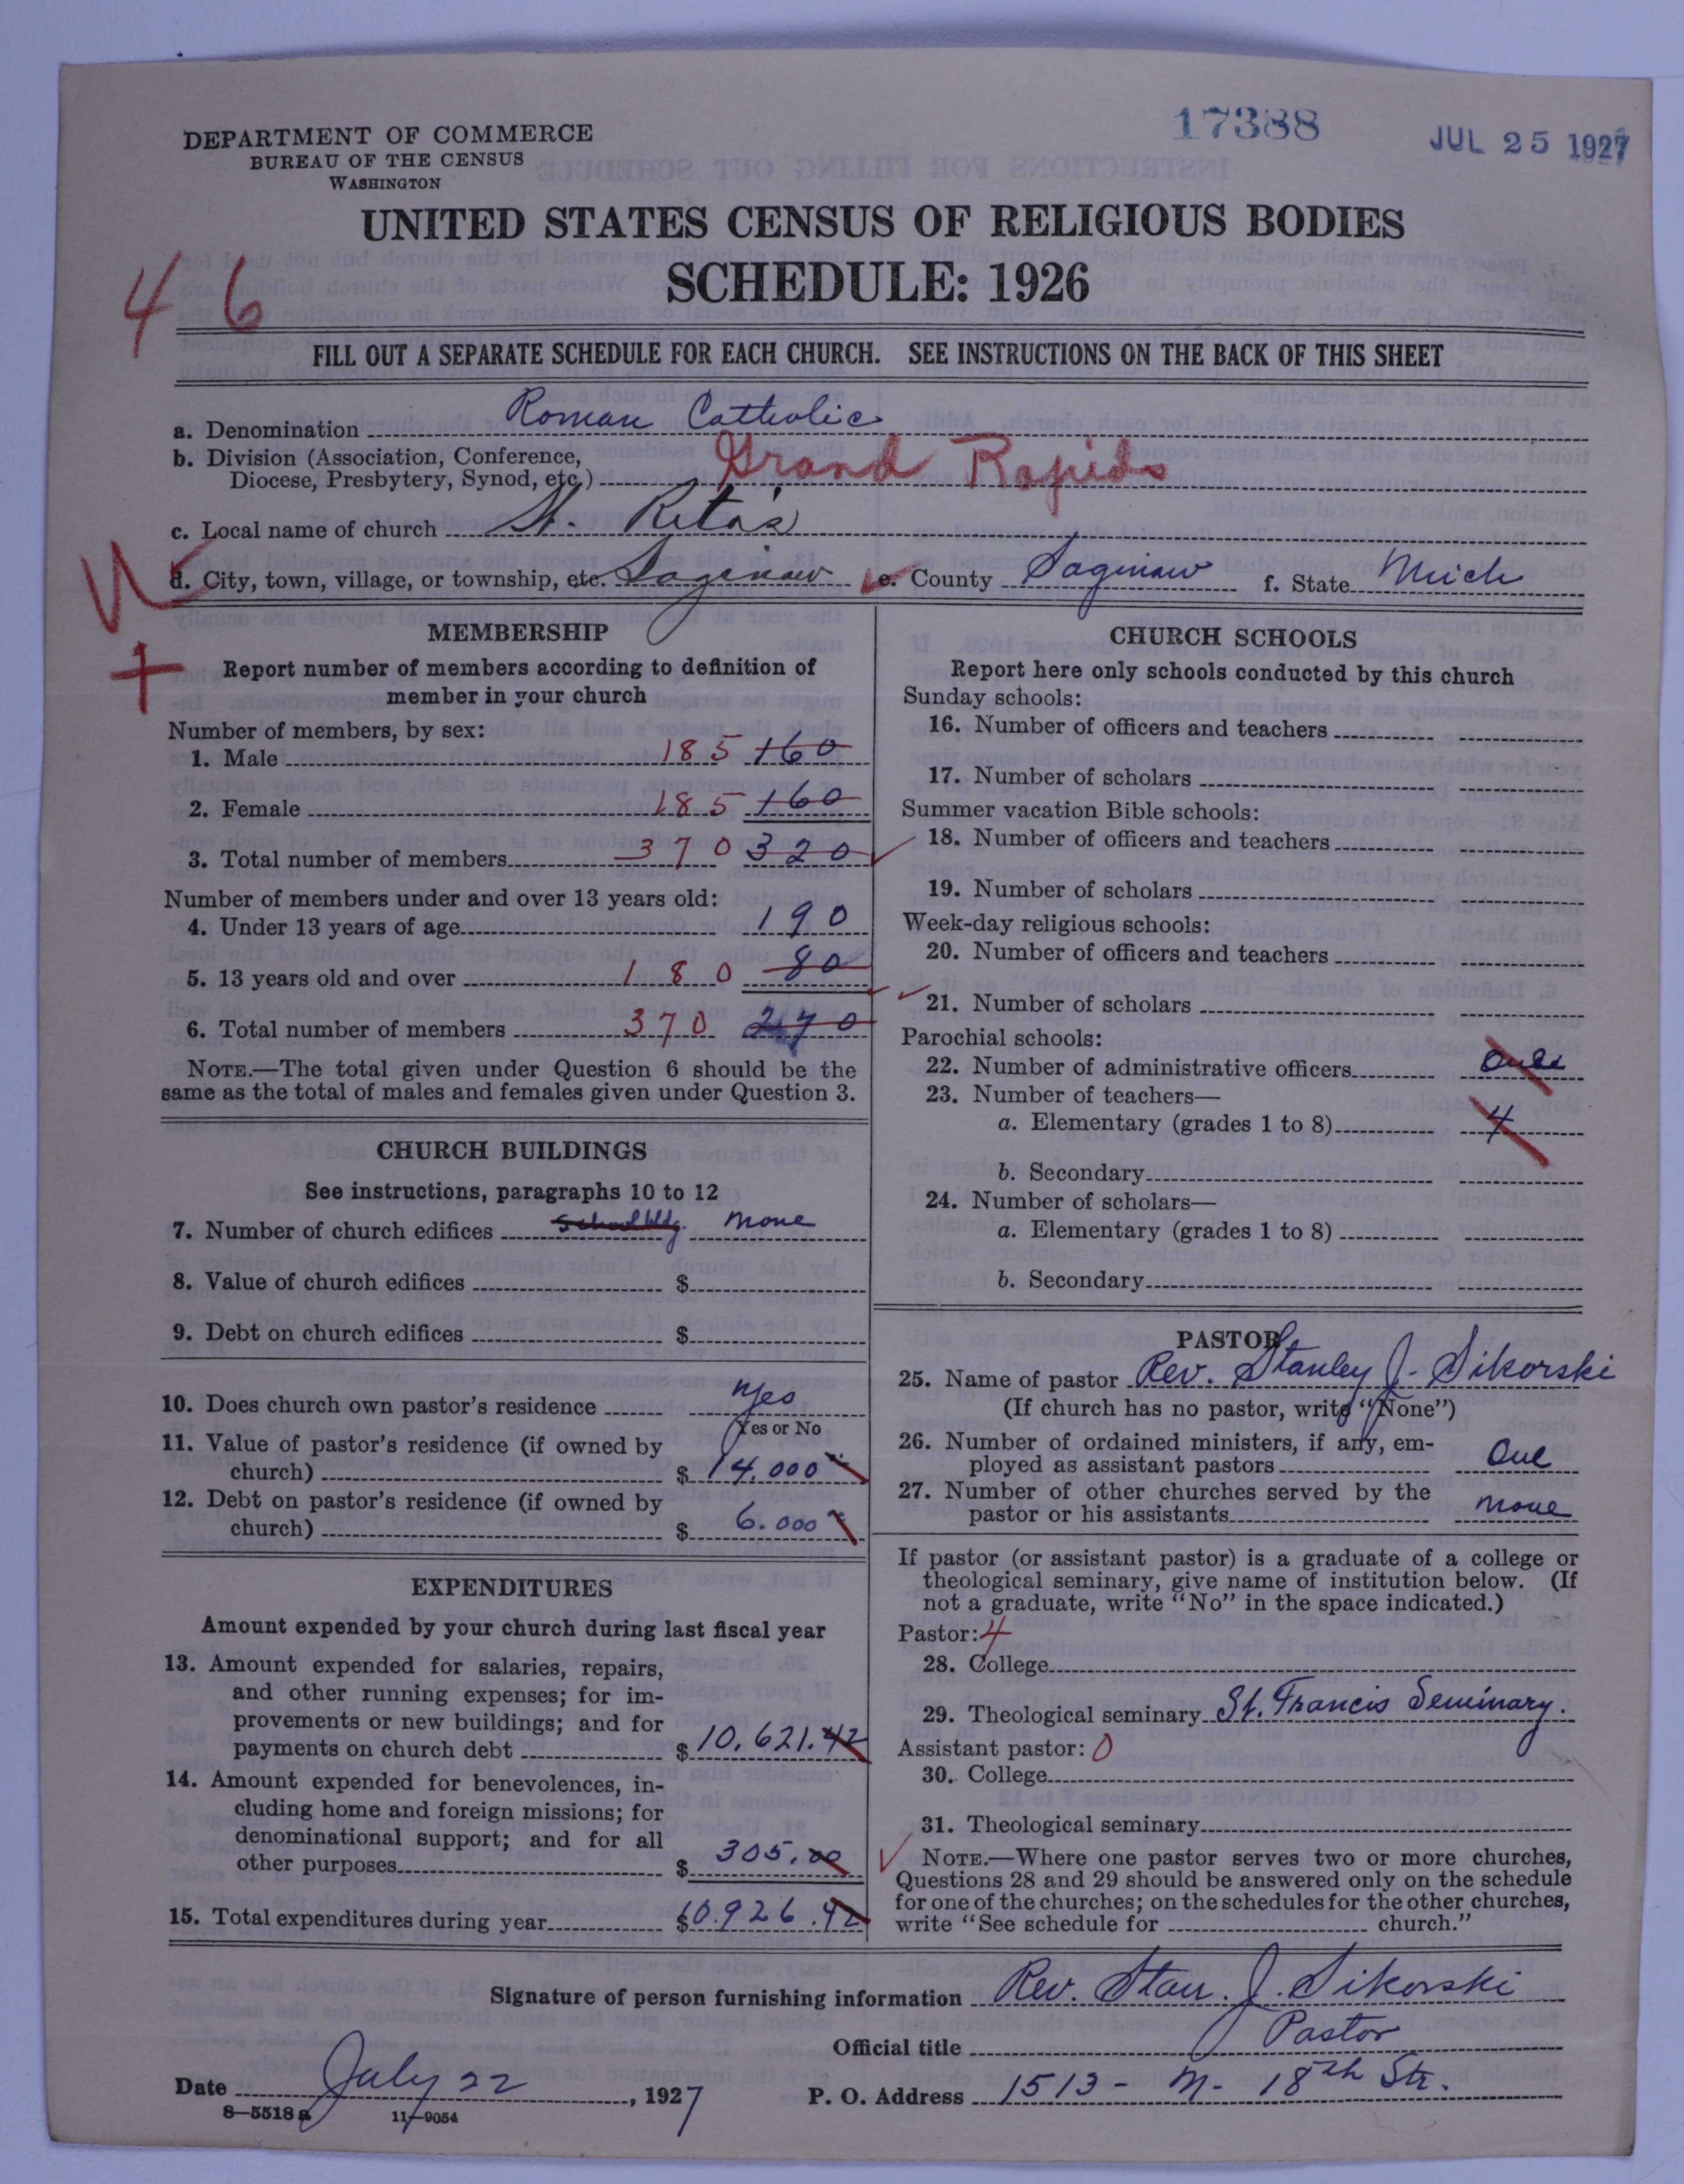 17388
JUL 25 1927
DEPARTMENT OF COMMERCE
BUREAU OF THE CENSUS
WASHINGTON
UNITED STATES CENSUS OF RELIGIOUS BODIES
SCHEDULE: 1926
46
FILL OUT A SEPARATE SCHEDULE FOR EACH CHURCH. SEE INSTRUCTIONS ON THE BACK OF THIS SHEET
a. Denomination Roman Catholic
b. Division (Association, Conference,
Diocese, Presbytery, Synod, etc.) Grand Rapids
c. Local name of church St. Rita's
d. City, town, village, or township, etc. Saginaw e. County Saginaw f. State Mich
MEMBERSHIP
Report number of members according to definition of
member in your church
Number of members, by sex:
1. Male 185 160
2. Female 185 160
3. Total number of members 370 320
Number of members under and over 13 years old:
4. Under 13 years of age 190
5. 13 years old and over 180 80
6. Total number of members 370 270
NOTE.—The total given under Question 6 should be the
same as the total of males and females given under Question 3.
CHURCH BUILDINGS
See instructions, paragraphs 10 to 12
7. Number of church edifices School bldg. none
8. Value of church edifices $
9. Debt on church edifices $
10. Does church own pastor's residence yes
Yes or No
11. Value of pastor's residence (if owned by
church) $ 14.000
12. Debt on pastor's residence (if owned by
church) $ 6.000
EXPENDITURES
Amount expended by your church during last fiscal year
13. Amount expended for salaries, repairs,
and other running expenses; for im-
provements or new buildings; and for
payments on church debt $ 10.621.42
14. Amount expended for benevolences, in-
cluding home and foreign missions; for
denominational support; and for all
other purposes $ 305.00
15. Total expenditures during year $10.926.42
CHURCH SCHOOLS
Report here only schools conducted by this church
Sunday schools:
16. Number of officers and teachers
17. Number of scholars
Summer vacation Bible schools:
18. Number of officers and teachers
19. Number of scholars
Week-day religious schools:
20. Number of officers and teachers
21. Number of scholars
Parochial schools:
22. Number of administrative officers
23. Number of teachers—
a. Elementary (grades 1 to 8) 4
b. Secondary
24. Number of scholars—
a. Elementary (grades 1 to 8)
b. Secondary
PASTOR
25. Name of pastor Rev. Stanley J. Sikorski
(If church has no pastor, write "None")
26. Number of ordained ministers, if any, em-
ployed as assistant pastors One
27. Number of other churches served by the
pastor or his assistants none
If pastor (or assistant pastor) is a graduate of a college or
theological seminary, give name of institution below. (If
not a graduate, write "No" in the space indicated.)
Pastor: 4
28. College
29. Theological seminary St. Francis Seminary.
Assistant pastor: 0
30. College
31. Theological seminary
NOTE.—Where one pastor serves two or more churches,
Questions 28 and 29 should be answered only on the schedule
for one of the churches; on the schedules for the other churches,
write "See schedule for church."
Signature of person furnishing information Rev. Stan. J. Sikorski
Official title Pastor
Date July 22, 1927 P. O. Address 1513 - N. 18th Str.
8—5518a 11—9054